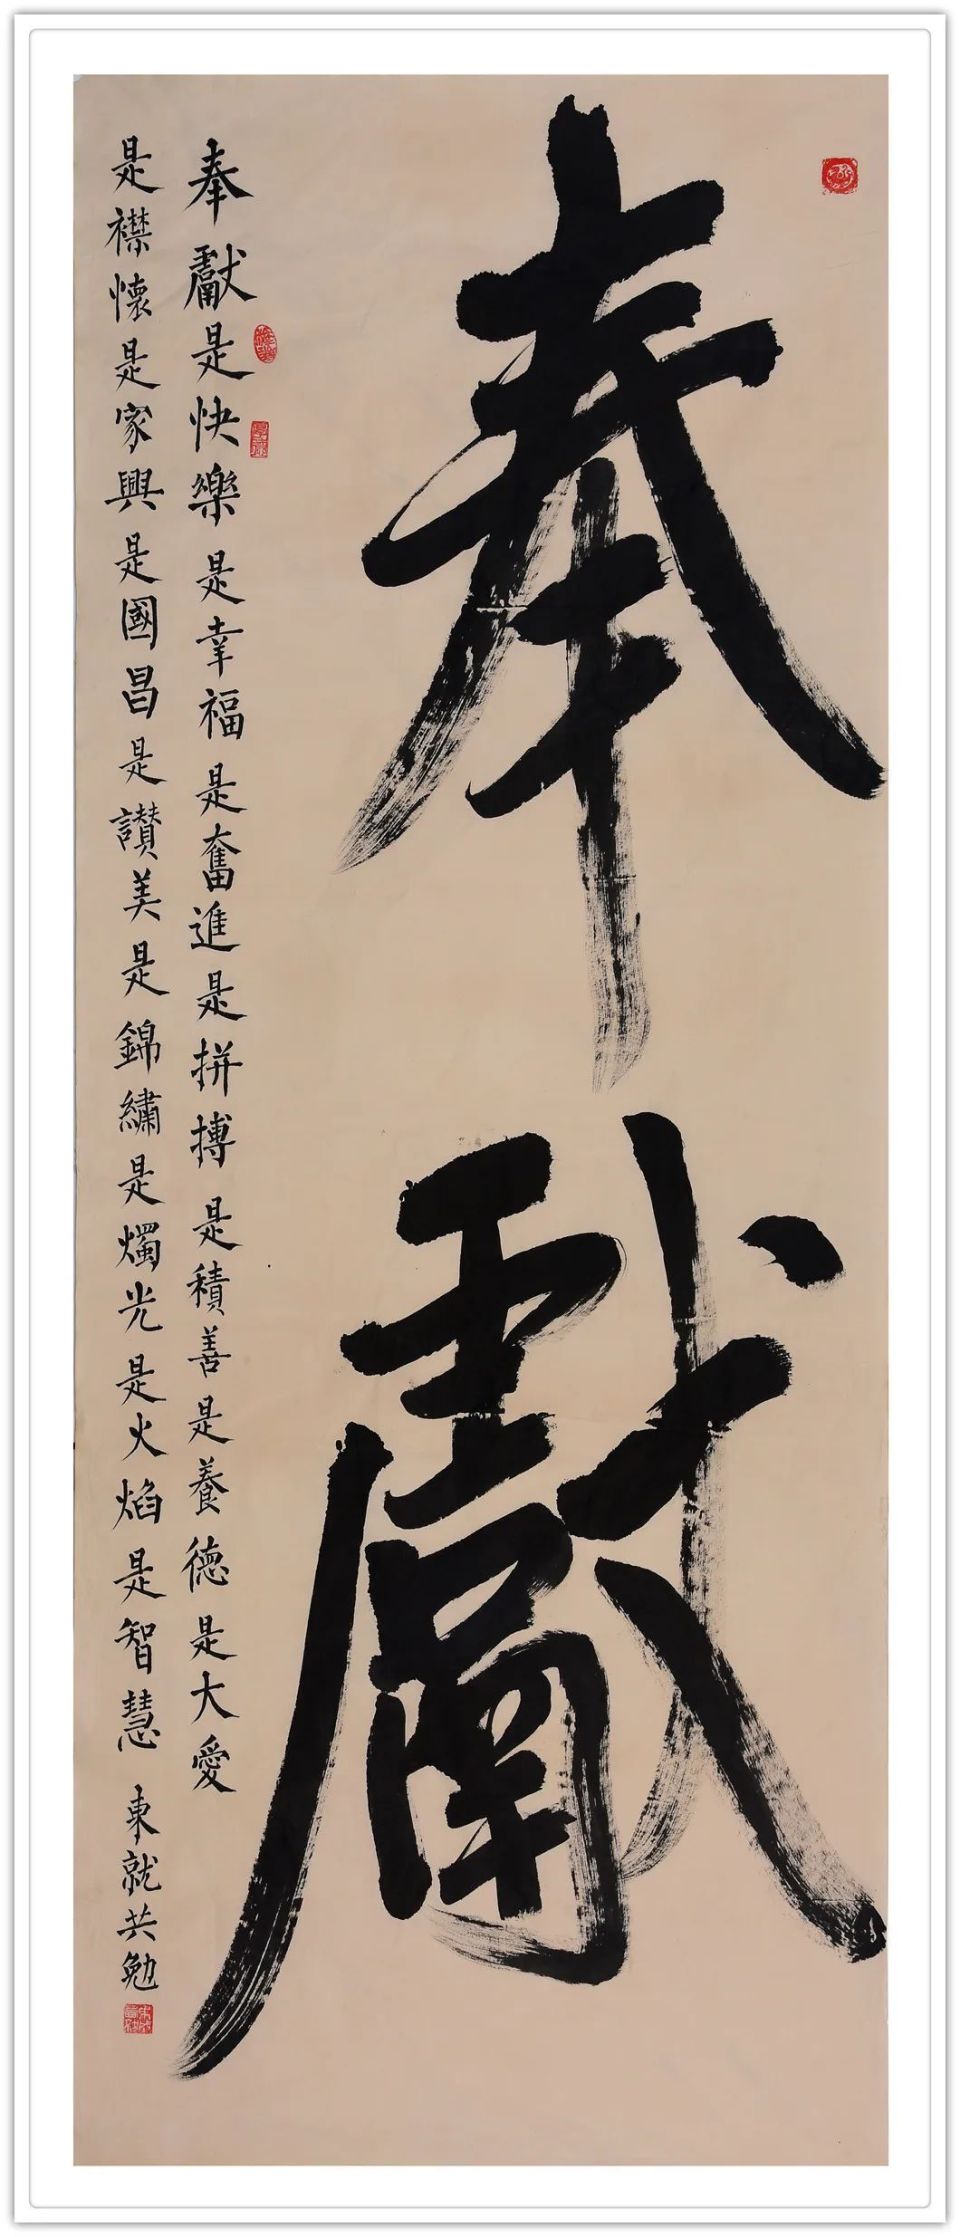 奉獻
奉獻是快樂是幸福是奮進是拼搏是積善是養德是大愛
是襟懷是家興是國昌是讃美是錦繡是燭光是火焰是智慧 東就共勉